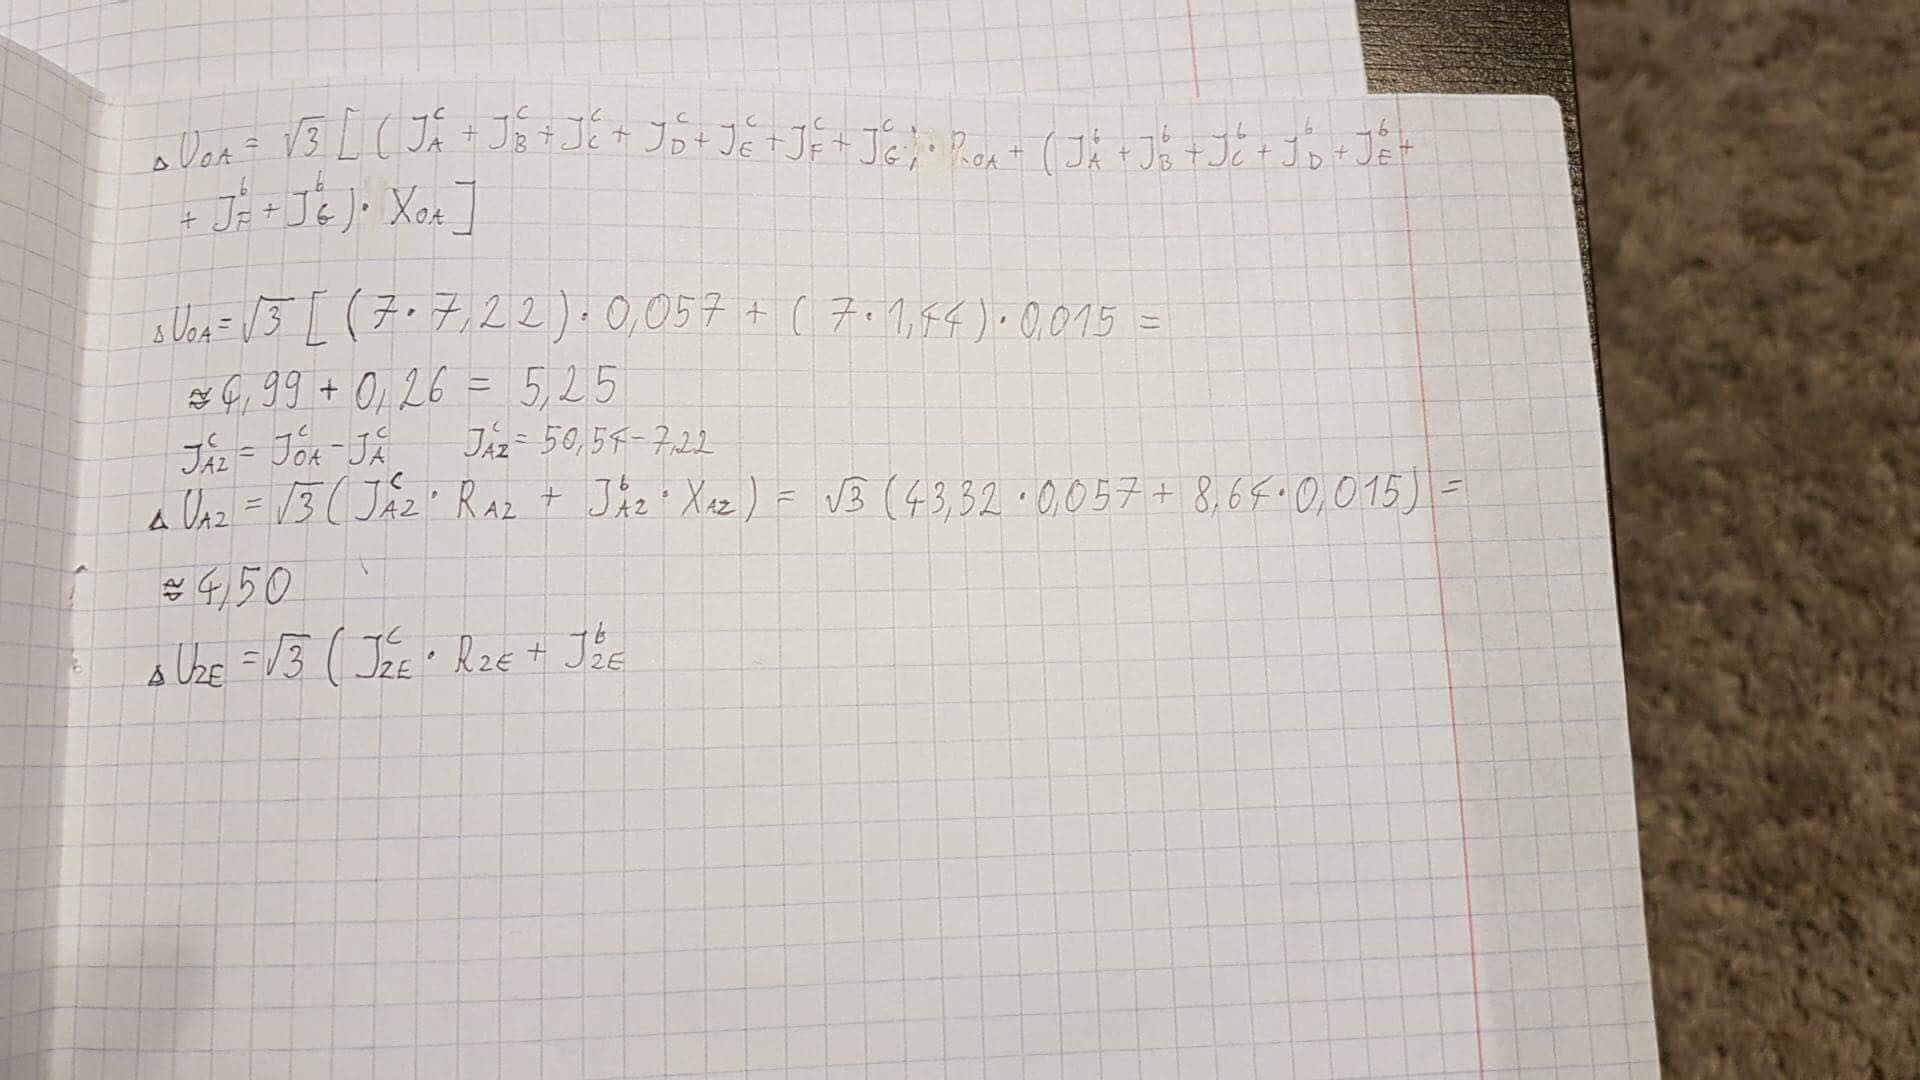 ΔU₀ₐ = √3 [(J_A^c + J_B^c + J_C^c + J_D^c + J_E^c + J_F^c + J_G^c) · R_OA + (J_A^b + J_B^b + J_C^b + J_D^b + J_E^b +
+ J_F^b + J_G^b) · X_OA]
ΔU_OA = √3 [(7 · 7,22) · 0,057 + (7 · 1,44) · 0,015 =
≈ 4,99 + 0,26 = 5,25
J_AZ^c = J_OA^c − J_A^c J_AZ^c = 50,54 − 7,22
ΔU_AZ = √3 (J_AZ^c · R_AZ + J_AZ^b · X_AZ) = √3 (43,32 · 0,057 + 8,64 · 0,015) =
≈ 4,50
ΔU_ZE = √3 (J_ZE^c · R_ZE + J_ZE^b